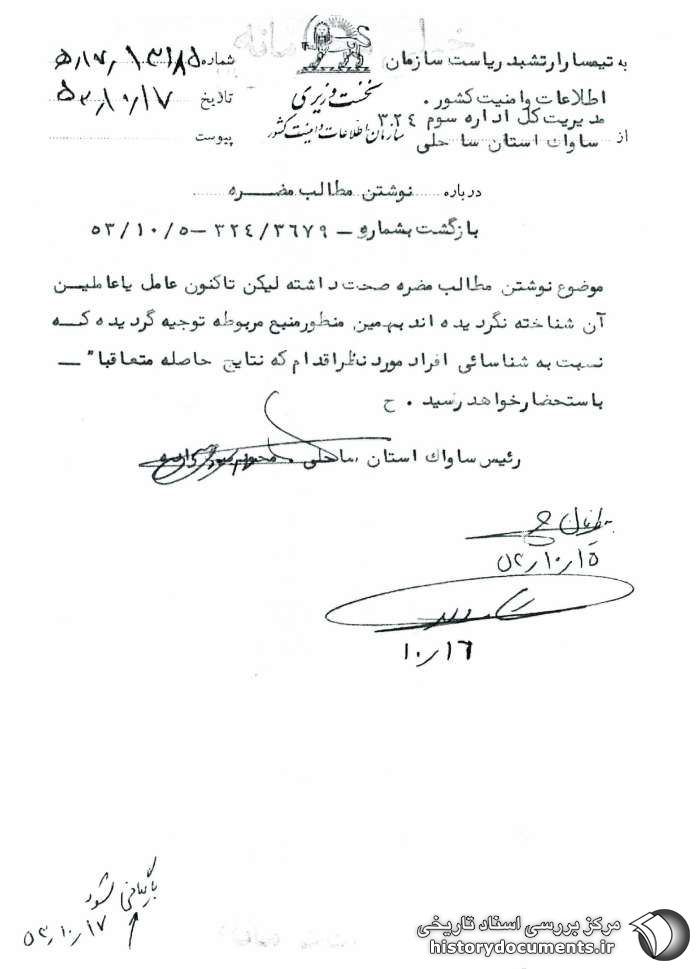 به تیمسار ارتشبد ریاست سازمان
اطلاعات و امنیت کشور .
مدیریت کل اداره سوم ۳۲۴
از ساواك استان ساحلی
نخست وزیری
سازمان اطلاعات و امنیت کشور
شماره
تاریخ ۵۳/۱۰/۱۷
پیوست
درباره نوشتن مطالب مضره
بازگشت بشماره - ۳۲۴/۳۶۷۹ - ۵۳/۱۰/۵
موضوع نوشتن مطالب مضره صحت داشته لیکن تاکنون عامل یاعاملین
آن شناخته نگردیده اند بهمین منظورمنبع مربوطه توجیه گردیده که
نسبت به شناسائی افراد مورد نظراقدام که نتایج حاصله متعاقبا" -
باستحضارخواهد رسید . ح
رئیس ساواك استان ساحلی .
۵۳/۱۰/۱۵
۱۰/۱۶
بایگانی شود
۵۳/۱۰/۱۷
مرکز بررسی اسناد تاریخی
historydocuments.ir